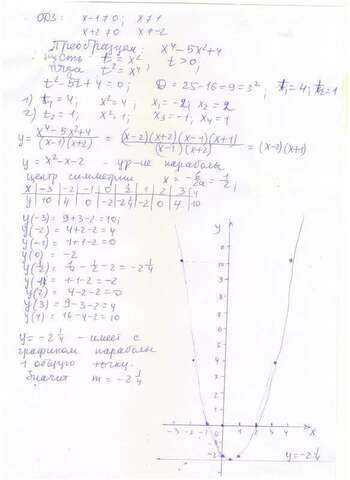 ОДЗ: x-1≠0; x≠1
x+2≠0 x≠-2
Преобразуем: x⁴-5x²+4
пусть t=x² t>0,
тогда t²=x⁴
t²-5t+4=0; D=25-16=9=3², t₁=4; t₂=1
1) t₁=4, x²=4, x₁=-2, x₂=2
2) t₂=1; x²=1; x₃=-1, x₄=1
y=(x⁴-5x²+4)/((x-1)(x+2)) = ((x-2)(x+2)(x-1)(x+1))/((x-1)(x+2)) = (x-2)(x+1)
y=x²-x-2 - ур-ие параболы
центр симметрии x=-b/2a=1/2;
x -3 -2 -1 0 1/2 1 2 3 4
y 10 4 0 -2 -2 1/4 -2 0 4 10
y(-3)=9+3-2=10;
y(-2)=4+2-2=4
y(-1)=1+1-2=0
y(0)=-2
y(1/2)=1/4-1/2-2=-2 1/4
y(1)=1-1-2=-2
y(2)=4-2-2=0
y(3)=9-3-2=4
y(4)=16-4-2=10
y=-2 1/4 - имеет с
графиком параболы
1 общую точку.
Значит m=-2 1/4
y
10
-3 -2 -1 0 1 2 3 4 x
-2
y=-2 1/4